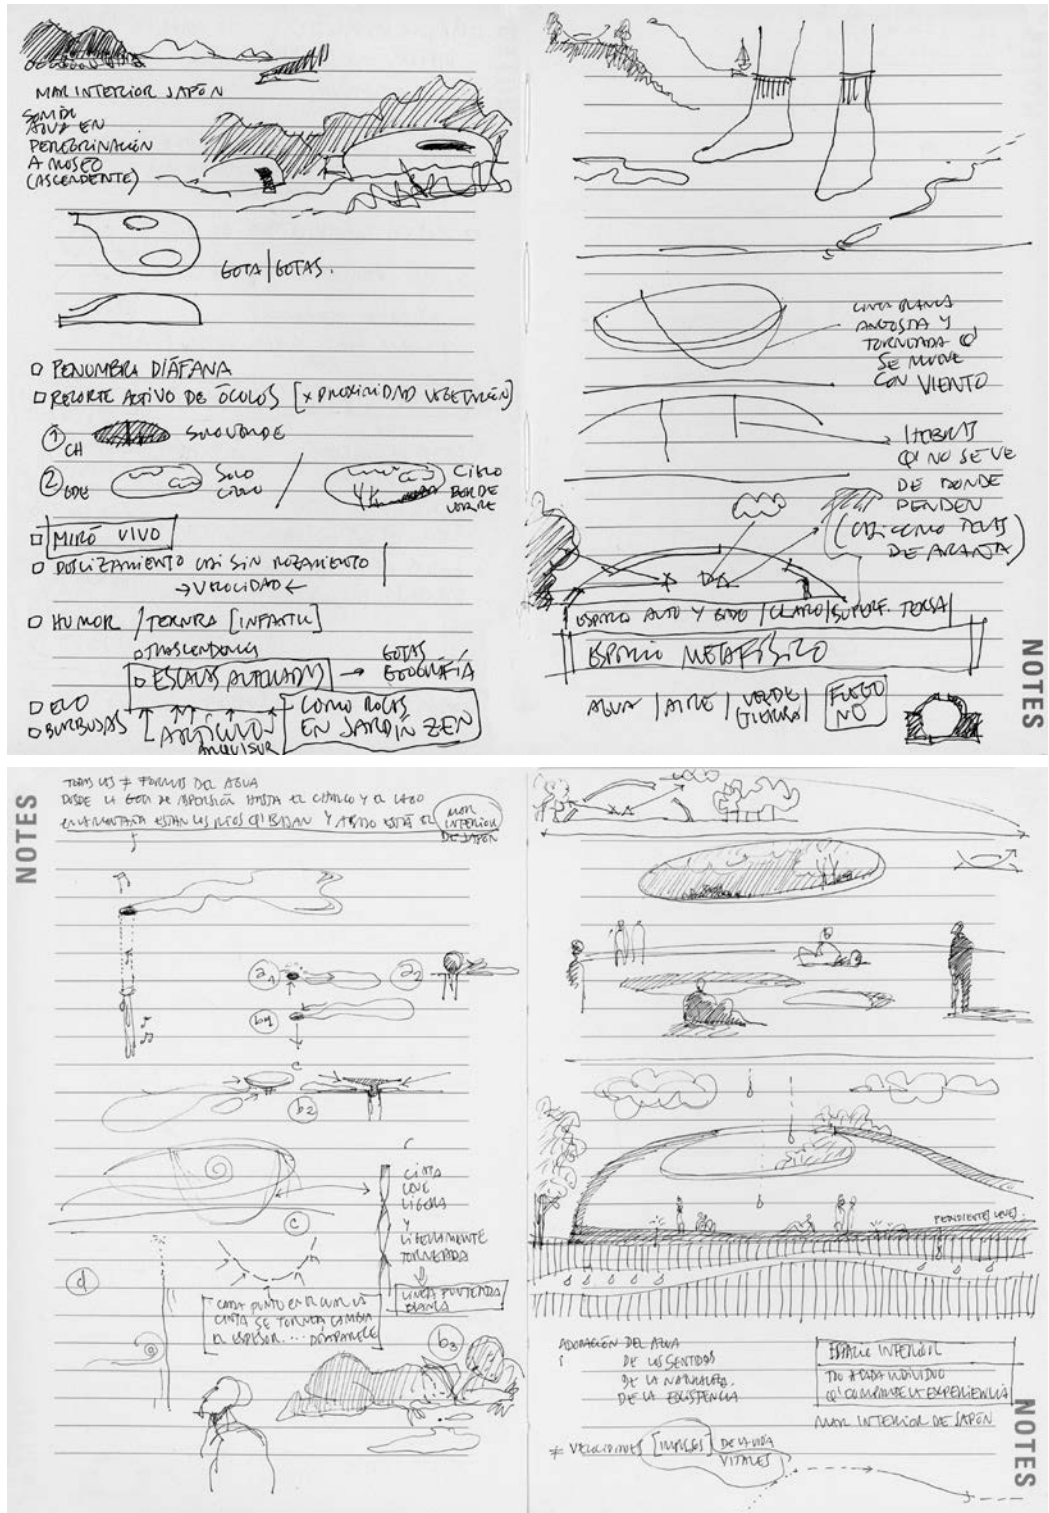 MAR INTERIOR JAPÓN
SOMBRA
AGUA EN
PEREGRINACIÓN
A MUSEO
(ASCENDENTE)
GOTA/GOTAS.
PENUMBRA DIÁFANA
RECORTE ACTIVO DE ÓCULOS [x PROXIMIDAD VEGETACIÓN]
1 CH SOLO VERDE
2 GDE SOLO CIELO / CIELO BORDE VERDE
MIRÓ VIVO
DESLIZAMIENTO CASI SIN ROZAMIENTO
→ VELOCIDAD ←
HUMOR / TERNURA [INFANTIL]
TRASCENDENCIA
ESCALAS ALTERADAS → GOTAS GEOGRAFÍA
ECO
BURBUJAS
COMO ROCAS
EN JARDÍN ZEN
CINTA BLANCA
ANGOSTA Y
TORNEADA Q'
SE MUEVE
CON VIENTO
HEBRAS
Q' NO SE VE
DE DONDE
PENDEN
(CASI COMO TELAS
DE ARAÑA)
ESPACIO ALTO Y BAJO / CLARO / SUPERF. TERSA /
ESPACIO METAFÍSICO
AGUA / AIRE / VERDE / TIERRA /
FUEGO
NO
NOTES
NOTES
TODAS LAS ≠ FORMAS DEL AGUA
DESDE LA GOTA DE ASPERSIÓN HASTA EL CHARCO Y EL LAGO
EN LA MONTAÑA ESTÁN LOS RÍOS Q' BAJAN Y ABAJO ESTÁ EL MAR
INTERIOR
DE JAPÓN
a1
a2
b1
c
b2
CINTA
LIGERA
Y
LIGERAMENTE
TORNEADA
c
LINEA PUNTEADA
BLANCA
d
CADA PUNTO EN EL CUAL LA
CINTA SE TORNEA CAMBIA
EL ESPESOR ... DESAPARECE
b3
PENDIENTES LEVES.
ADORACIÓN DEL AGUA
DE LOS SENTIDOS
DE LA NATURALEZA.
DE LA EXISTENCIA
ESPACIO INTERIOR
DE CADA INDIVIDUO
Q' COMPRENDE LA EXPERIENCIA
MAR INTERIOR DE JAPÓN
≠ VELOCIDADES [IMPULSOS] DE LA VIDA
VITALES
NOTES